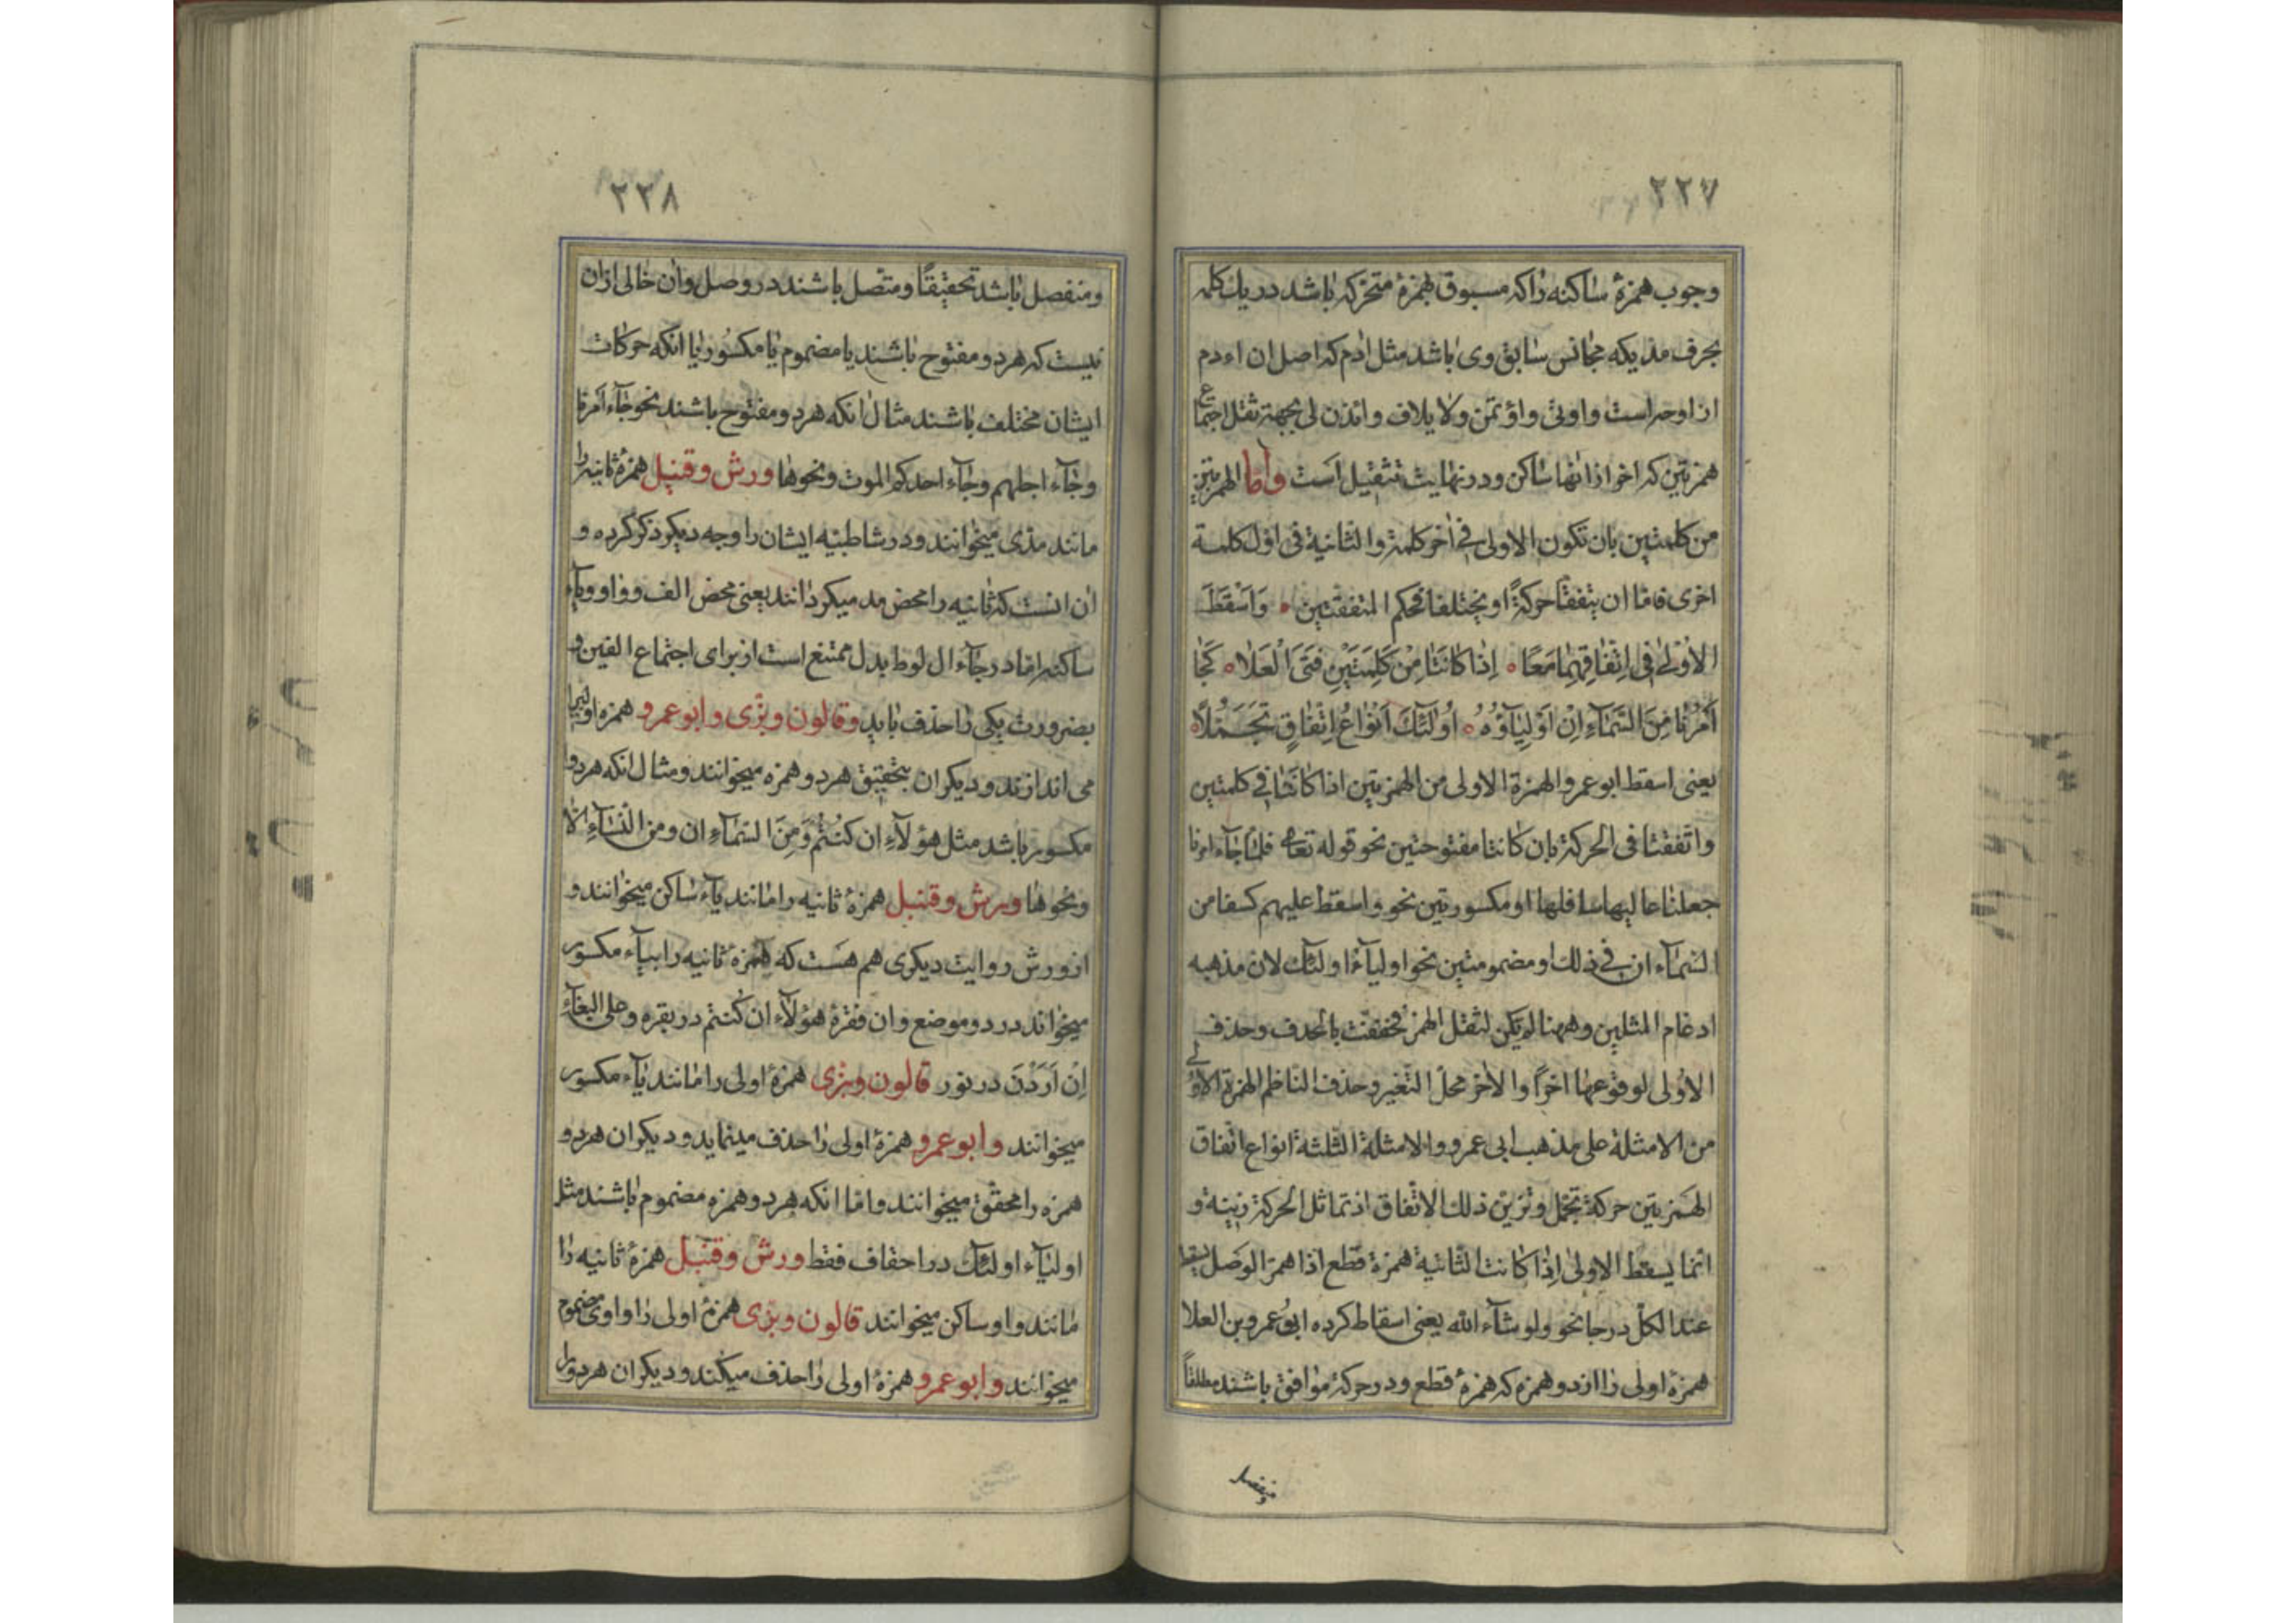 ٢٢٧
وجوب همزهٔ ساکنه را که مسبوق بهمزهٔ متحرکه باشد در یك کلمه
بحرف مد یکه مجانس سابق وی باشد مثل ادم که اصل ان اءدم
از اوحر است و اوتی و اؤتمن و لایلاف و ائذن لی بجهة ثقل اجتماع
همزتین که اخر از انها ساکن و در نهایت تثقیل است واما الهمزتین
من کلمتین بان تکون الاولی فی اخر کلمة والثانیة فی اول کلمة
اخری فاما ان یتفقا حرکةً او یختلفا فحکم المتفقتین وَاَسْقَطَ
الاُوْلیٰ فِی اتِّفَاقِهِمَا مَعًا اِذَا کَانَتَا مِنْ کَلِمَتَیْنِ فَتَی الْعَلَا کَجَا
اَمْرُنَا مِنَ السَّمَآءِ اِنَّ اَوْلِیَآؤُهُ اُولٰٓئِكَ اَنْوَاعُ اتِّفَاقٍ تَجَمَّلَا
یعنی اسقط ابو عمرو الهمزة الاولی من الهمزتین اذا کانتا فی کلمتین
واتفقتا فی الحرکة بان کانتا مفتوحتین نحو قوله تعالی فلما جآء امرنا
جعلنا عالیها سافلها او مکسورتین نحو واسقط علیهم کسفا من
السمآء ان فی ذلك او مضمومتین نحو اولیآءُ اولئك لان مذهبه
ادغام المثلین وههنا لم یکن لثقل الهمز فخففت بالحذف وحذف
الاولی لوقوعها اخرًا والاخر محل التغیر وحذف الناظم الهمزة الاولی
من الامثلة علی مذهب ابی عمرو والامثلة الثلثة انواع اتفاق
الهمزتین حرکة تجمّل وتزین ذلك الاتفاق اذ تماثل الحرکة زینة و
انما یسقط الاولی اذا کانت الثانیة همزة قطع اذا همز الوصل یسقط
عند الکل درجا نحو ولو شآء الله یعنی اسقاط کرده ابو عمرو بن العلا
همزهٔ اولی را از دو همزه که همزهٔ قطع و در حرکة موافق باشند مطلقاً
ومنفصل
٢٢٨
ومنفصل باشد تحقیقًا ومتّصل باشند در وصل وان خالی ازان
نیست که هر دو مفتوح باشند یا مضموم یا مکسور یا انکه حرکات
ایشان مختلف باشند مثال انکه هر دو مفتوح باشند نحو جآء امرنا
وجآء اجلهم وجآء احدکم الموت ونحوها ورش وقنبل همزهٔ ثانیه را
مانند مدّی میخوانند ودر شاطبیه ایشان را وجه دیکر ذکر کرده و
ان انست که ثانیه را محض مد میکردانند یعنی محض الف وواو ویآء
ساکنه اما در جآء ال لوط بدل ممتنع است از برای اجتماع الفین و
بضرورت یکی را حذف باید وقالون وبزی وابوعمرو همزه اولی را
می اندازند ودیکران بتحقیق هر دو همزه میخوانند ومثال انکه هر دو
مکسور باشد مثل هؤلآءِ ان کُنْتُمْ وَمِنَ السَّمَآءِ ان ومن النسآءِ الّا
ونحوها ورش وقنبل همزهٔ ثانیه را مانند یآء ساکن میخوانند و
از ورش روایت دیکری هم هست که همزهٔ ثانیه را بیآء مکسور
میخواند در دو موضع وان فقرهٔ هؤلآء ان کنتم در بقره وعلی البغآء
اِنْ اَرَدْنَ در نور قالون وبزی همزهٔ اولی را مانند یآء مکسور
میخوانند وابو عمرو همزهٔ اولی را حذف مینماید ودیکران هر دو
همزه را محقق میخوانند واما انکه هر دو همزه مضموم باشند مثل
اولیآء اولئك در احقاف فقط ورش وقنبل همزهٔ ثانیه را
مانند واو ساکن میخوانند قالون وبزی همزهٔ اولی را واوی مضموم
میخوانند وابو عمرو همزهٔ اولی را حذف میکند ودیکران هر دو را